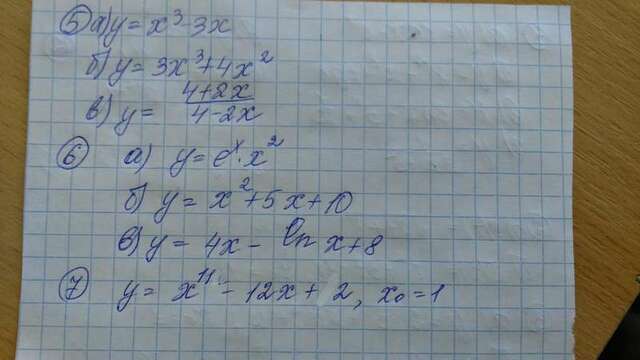 ⑤ а) y = x³ - 3x
б) y = 3x³ + 4x²
в) y = (4 + 2x)/(4 - 2x)
⑥ а) y = eˣ · x²
б) y = x² + 5x + 10
в) y = 4x - ln x + 8
⑦
y = x⁴ - 12x + 2, x₀ = 1